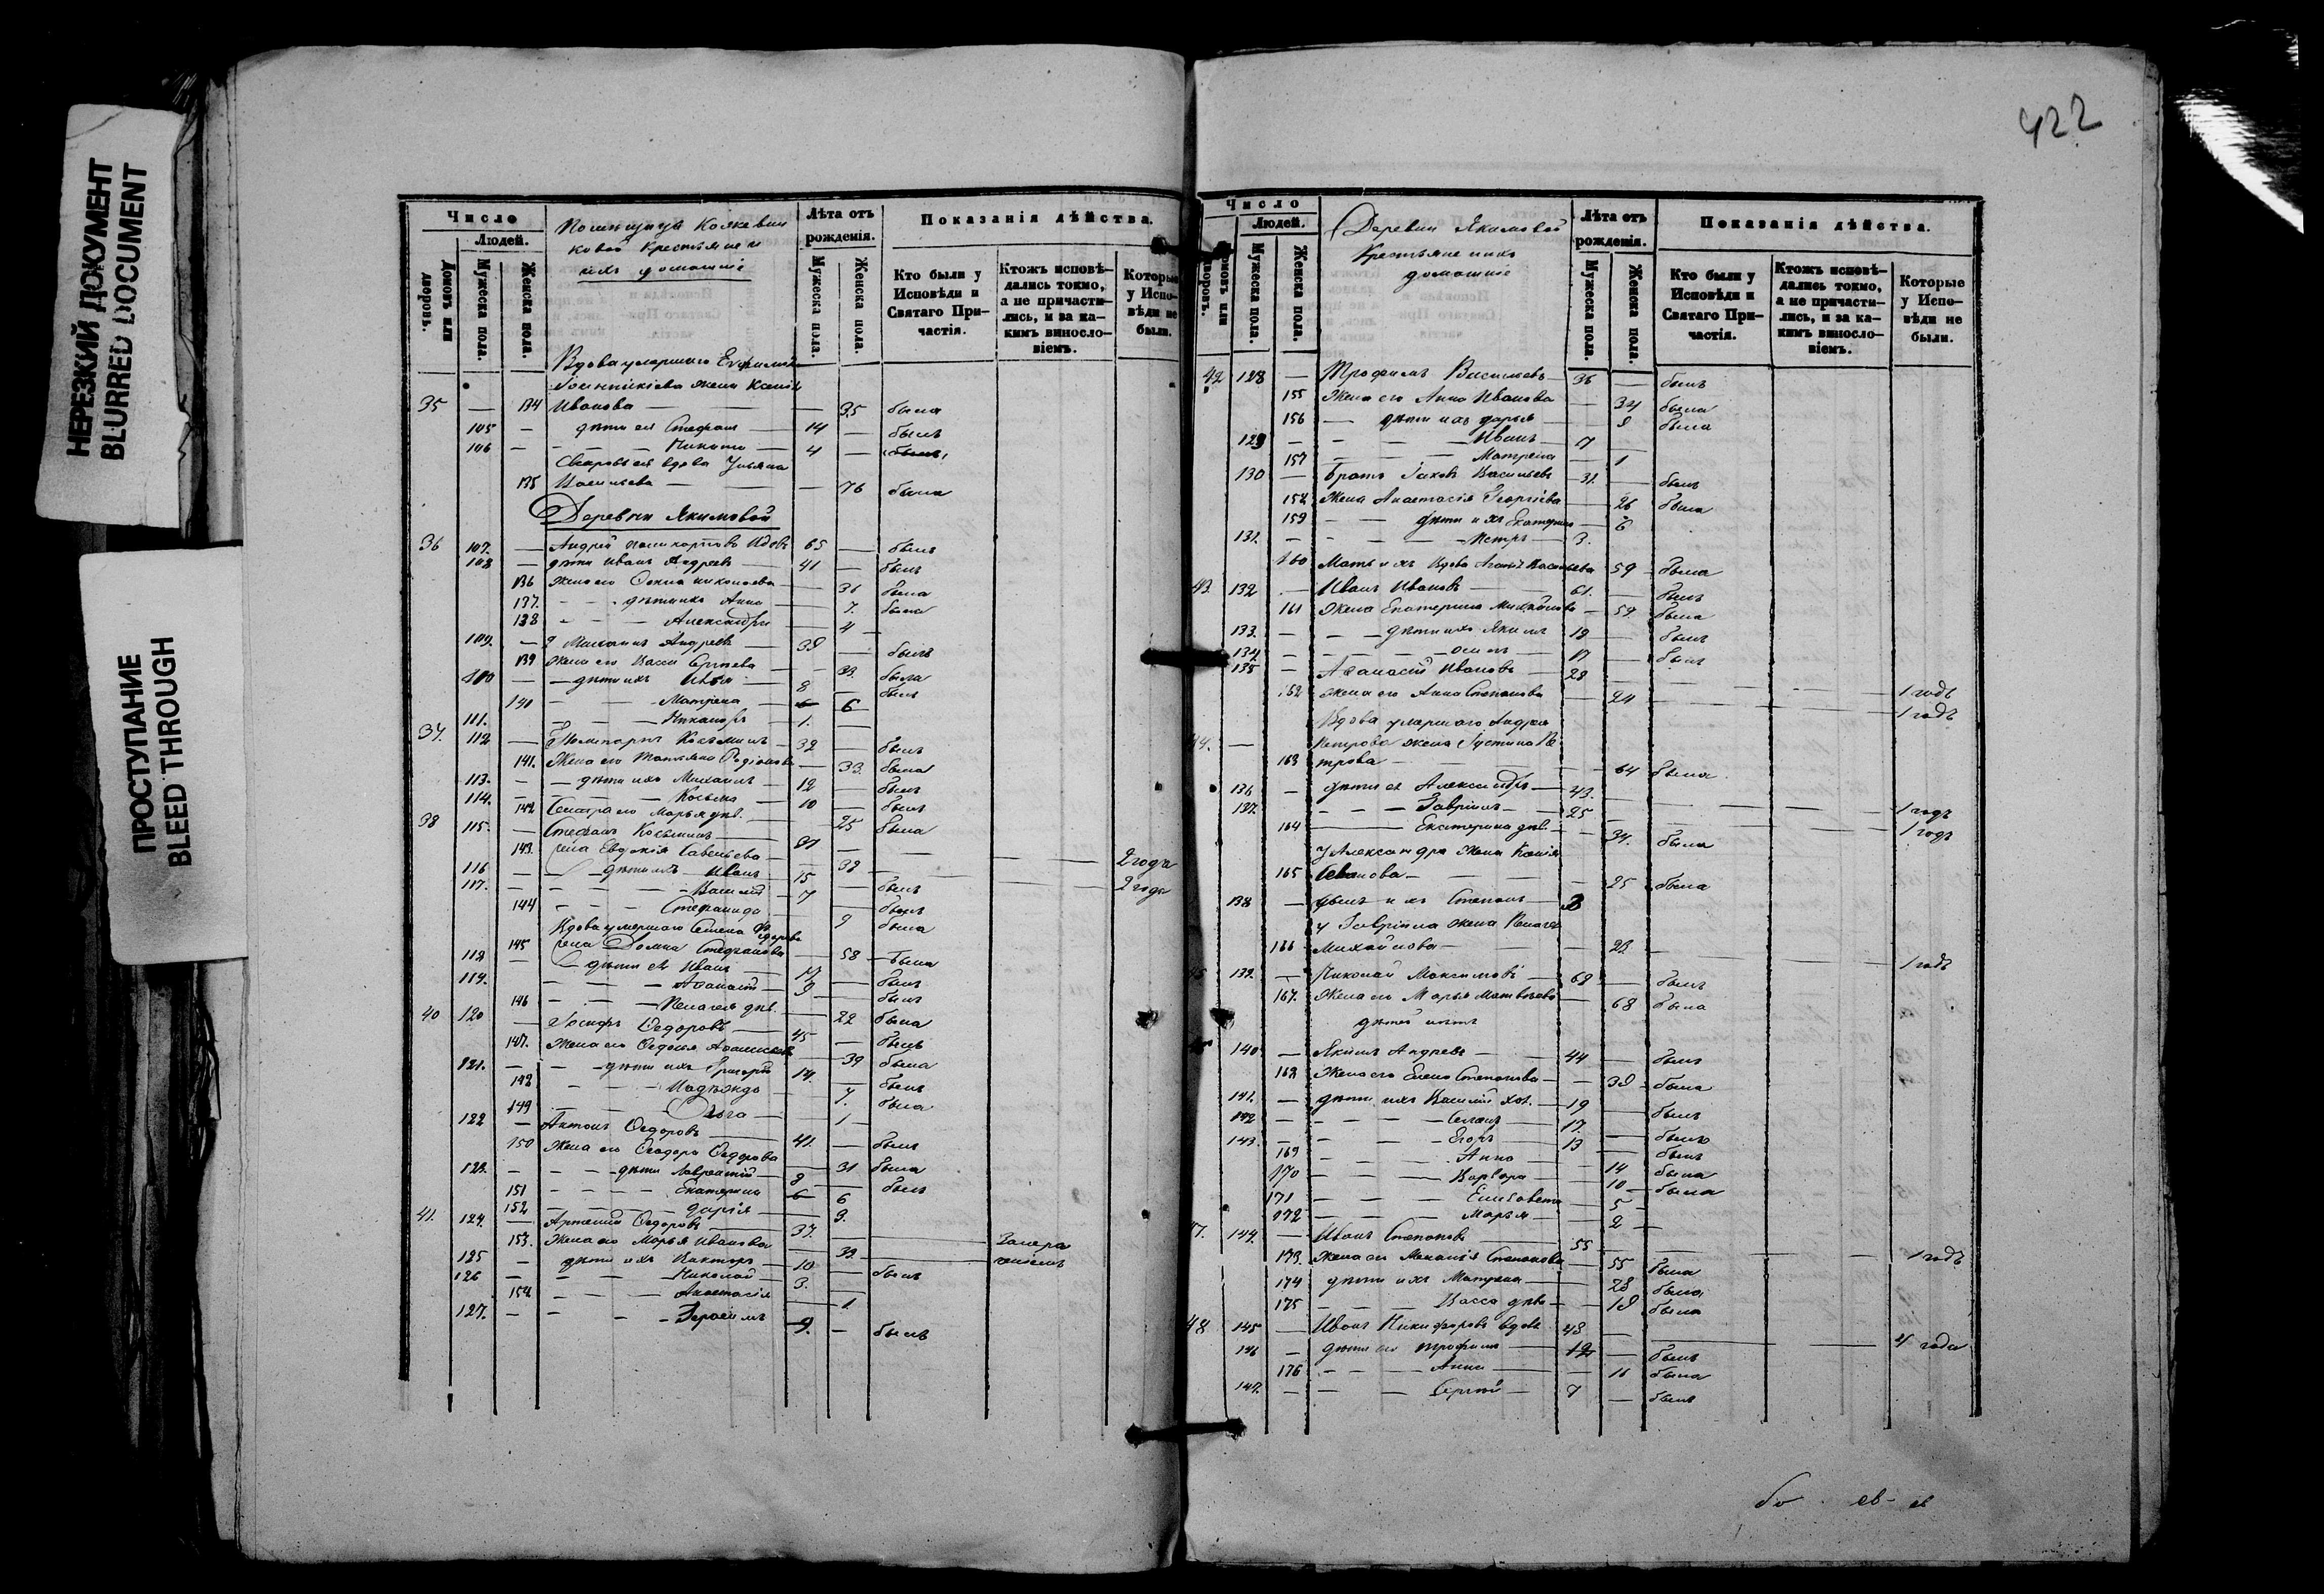 НЕРЕЗКИЙ ДОКУМЕНТ
BLURRED DOCUMENT
ПРОСТУПАНИЕ
BLEED THROUGH
Число
Людей.
Домовъ или дворовъ.
Мужеска пола.
Женска пола.
крестьяне и
ихъ домашніе
Лѣта отъ рожденія.
Мужеска пола.
Женска пола.
Показанія дѣйства.
Кто были у Исповѣди и Святаго Причастія.
Ктожъ исповѣдались токмо, а не причастились, и за какимъ винословіемъ.
Которые у Исповѣди не были.
Вдова умершаго
жена
35 — 134 Иванова — 35 была
105 — дѣти ея Стефанъ 14 — былъ
106 — Никита 4 — былъ
Свекровь ея вдова Ульяна
135 Васильева — 76 была
Деревни Якимовой
36 107. — Андрей вдовъ 65 — былъ
108 — дѣти Иванъ Андреевъ 41 — былъ
136 жена его Николаева 31 была
137. дѣти ихъ Анна 7. была
138 Александра 4 —
109. — Михаилъ Андреевъ 38 — былъ
139 жена его Васса Сергѣева 33. была
110 — дѣти ихъ Илья 8 — былъ
140 Матрена 6
111. Никаноръ 1.
37. 112 — Козьминъ 32 — былъ
141. Жена его Татьяна Родіонова 33. была
113. — дѣти ихъ Михаилъ 12 — былъ
114. Козьма 10 — былъ
142 Сестра его Марья дѣв. 25 была
38 115. — Стефанъ Козьминъ 37 — 2 года
143. жена Евдокія Савельева 38 — 2 года
116 — дѣти ихъ Иванъ 15 — былъ
117. Василій 7 — былъ
144 Степанида 9 была
Вдова умершаго Семена Федорова
145 жена Домна Стефанова 58 — была
118 — дѣти ея Иванъ 17 — былъ
119. Аѳанасій 9 — былъ
146 Пелагея дѣв. 22 была
40 120 — Іосифъ Ѳедоровъ 45 — былъ
147. жена его 39 была
121. — дѣти ихъ Григорій 14. — былъ
148 Надежда 7. была
149 Ольга 1 —
122 — Антонъ Ѳедоровъ 41. — былъ
150 жена его Ѳеодора Ѳедорова 31 была
123. — дѣти Лаврентій 8 — былъ
151 Екатерина 6
152 Дарія 3.
41. 124. — Артемій Ѳедоровъ 37.
153. жена его Марья Иванова 32.
125 — дѣти ихъ Викторъ 10 — былъ
126 — Николай 3.
154 Анастасія 1
127. — Герасимъ 9. — былъ
422
Число
Людей.
Домовъ или дворовъ.
Мужеска пола.
Женска пола.
Деревни Якимовой
Крестьяне и ихъ
домашніе
Лѣта отъ рожденія.
Мужеска пола.
Женска пола.
Показанія дѣйства.
Кто были у Исповѣди и Святаго Причастія.
Ктожъ исповѣдались токмо, а не причастились, и за какимъ винословіемъ.
Которые у Исповѣди не были.
42 128 — Трофимъ Васильевъ 36 — былъ
155 Жена его Анна Иванова 34 была
156 — дѣти ихъ Дарья 9 была
129 — Иванъ 7
157 Матрена 1
130 — Братъ Іаковъ Васильевъ 31. — былъ
158 Жена Анастасія Георгіева 26 была
159 дѣти ихъ Екатерина 6
131. Петръ 3.
160 Мать ихъ вдова Васильева 59 была
43. 132 — Иванъ Ивановъ 61. — былъ
161 Жена Екатерина Михайлова 59. была
133. — дѣти ихъ Якимъ 19 — былъ
134 — Осипъ 17 — былъ
135 — Аѳанасій Ивановъ 28 — 1 годъ
162 жена его Анна Степанова 24 — 1 годъ
Вдова умершаго Андрея
44. — Петрова жена Іустина Пе
163 трова — 64 была
136 — дѣти ея Александръ 43. — 1 годъ
137. — Гавріилъ 25 — 1 годъ
164 Екатерина дѣв. 34. была
у Александра жена
165 Иванова — 25 была
138 — сынъ ихъ Степанъ 3
у Гавріила жена Пелагея
166 Михайлова — 23 — 1 годъ
45 139. — Николай Максимовъ 69 — былъ
167. жена его Марья Матвѣева 68 была
дѣтей нѣтъ
140 — Якимъ Андреевъ 44 — былъ
168 Жена его Елена Степанова 39 была
141. — дѣти ихъ Василій хол. 19 — былъ
142 — 17. — былъ
143. — Егоръ 13 — былъ
169 Анна 14 была
170 Варвара 10 — была
171 Елисавета 5 —
172 Марья 2 —
47. 144. — Иванъ Степановъ 55 — 1 годъ
173. Жена его Меланія Степанова 55 была
174 дѣти ихъ Матрена 28 была
175 Васса дѣв. 19 была
48 145 — Иванъ Никифоровъ вдовъ 48 — 4 года
146 — дѣти его Трофимъ 12 — былъ
176 Анна 11 была
147. — Сергѣй 7 — былъ